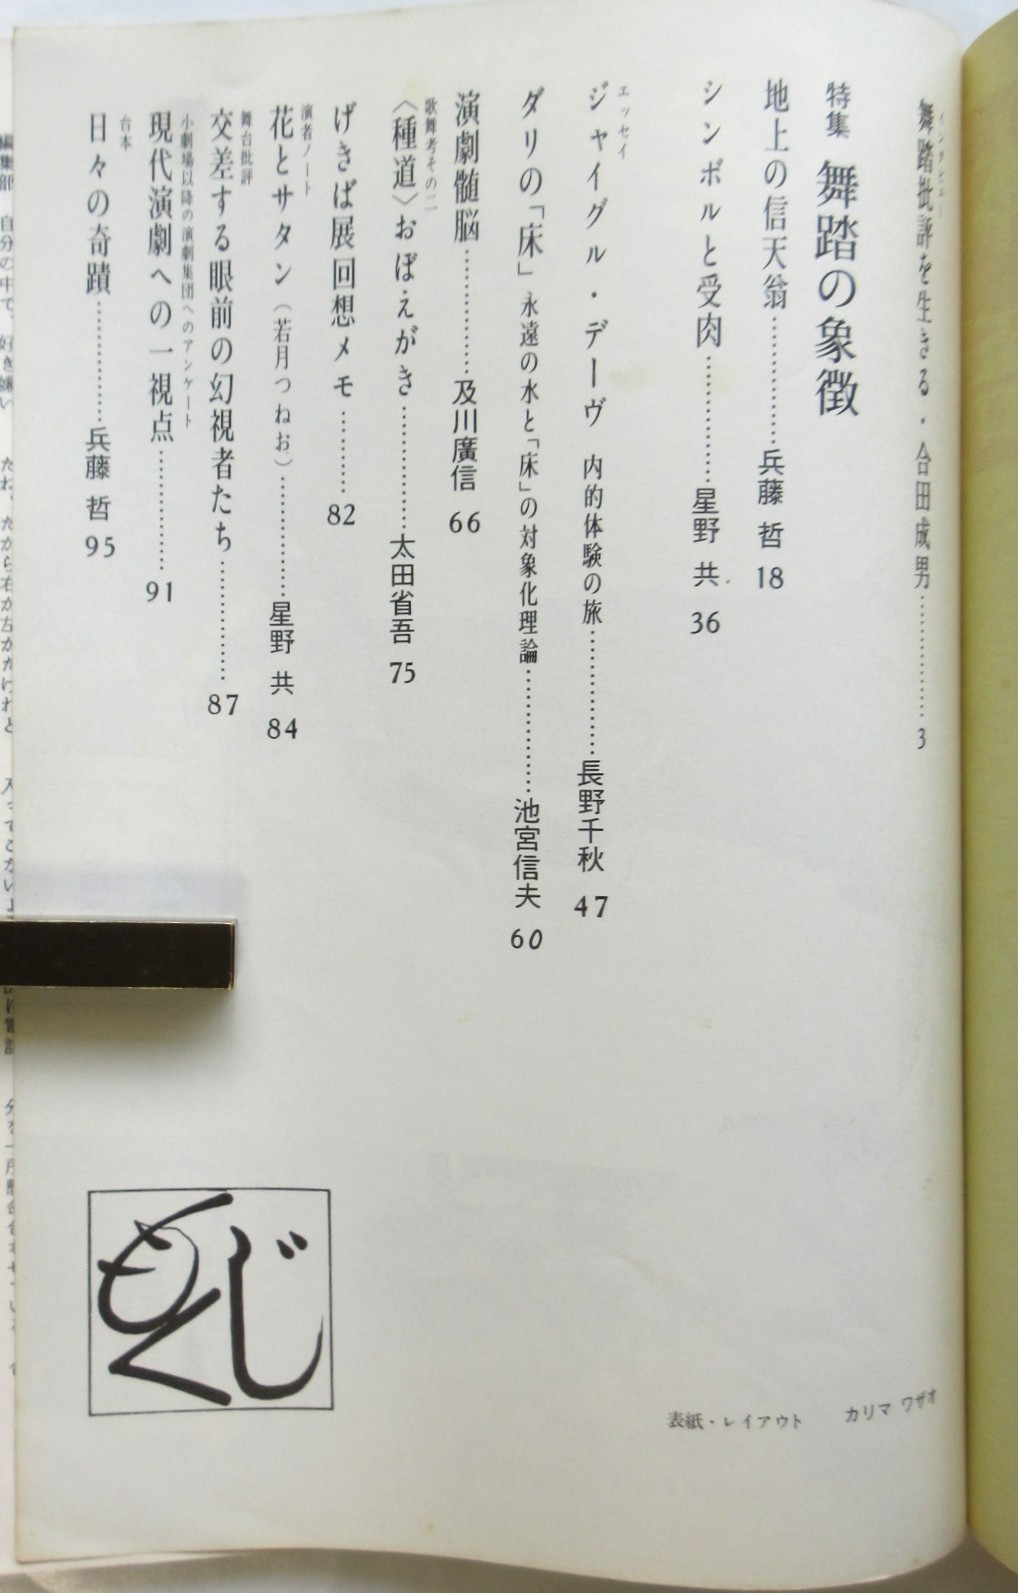 インタビュー
舞踏批評を生きる・合田成男…………3
特集 舞踏の象徴
地上の信天翁…………兵藤 哲 18
シンボルと受肉…………星野 共 36
エッセイ
ジャイグル・デーヴ 内的体験の旅…………長野千秋 47
ダリの「床」 永遠の水と「床」の対象化理論…………池宮信夫 60
演劇髄脳…………及川廣信 66
歌舞考その二
〈種道〉おぼえがき…………太田省吾 75
げきば展回想メモ…………82
演者ノート
花とサタン（若月つねお）…………星野 共 84
舞台批評
交差する眼前の幻視者たち…………87
小劇場以降の演劇集団へのアンケート
現代演劇への一視点…………91
台本
日々の奇蹟…………兵藤 哲 95
もくじ
表紙・レイアウト カリマ ワザオ
編集部 自分の中で、好き嫌い